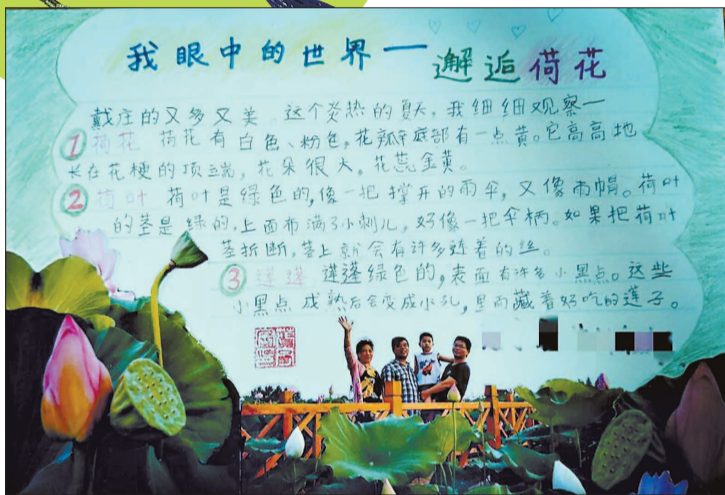 我眼中的世界——邂逅荷花
戴庄的又多又美 这个炎热的夏天,我细细观察一
① 荷花 荷花有白色、粉色,花瓣底部有一点黄。它高高地
长在花梗的顶端,花朵很大,花蕊金黄。
② 荷叶 荷叶是绿色的,像一把撑开的雨伞,又像雨帽。荷叶
的茎是绿的,上面布满了小刺儿,好像一把伞柄。如果把荷叶
茎折断,茎上就会有许多连着的丝。
③ 莲蓬 莲蓬绿色的,表面有许多小黑点。这些
小黑点成熟后会变成小孔,里面藏着好吃的莲子。